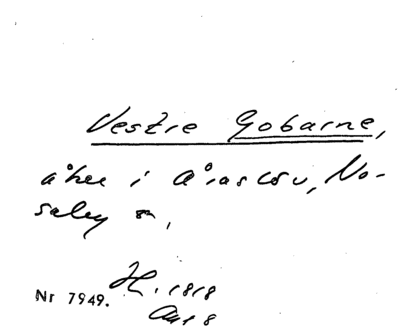 Vestre Gobarne,
åker i Åraslöv, No-
saby sn,
Nr 7949. 1818
Akt 8